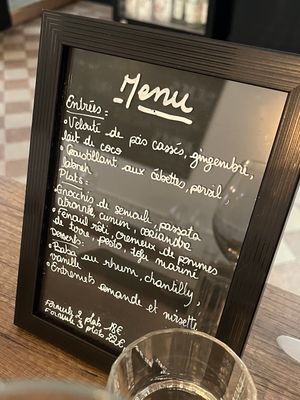 Menu
Entrées :
• Velouté de pois cassés, gingembre,
lait de coco
• Croustillant aux cébettes, persil,
labneh
Plats :
• Gnocchis de semoule, passata
citronnée, cumin, coriandre
• Fenouil rôti, crémeux de pommes
de terre, pesto, tofu mariné
Desserts :
• Baba au rhum, chantilly,
vanille
• Entremets amande et noisette
Formule 2 plats 18€
Formule 3 plats 22€